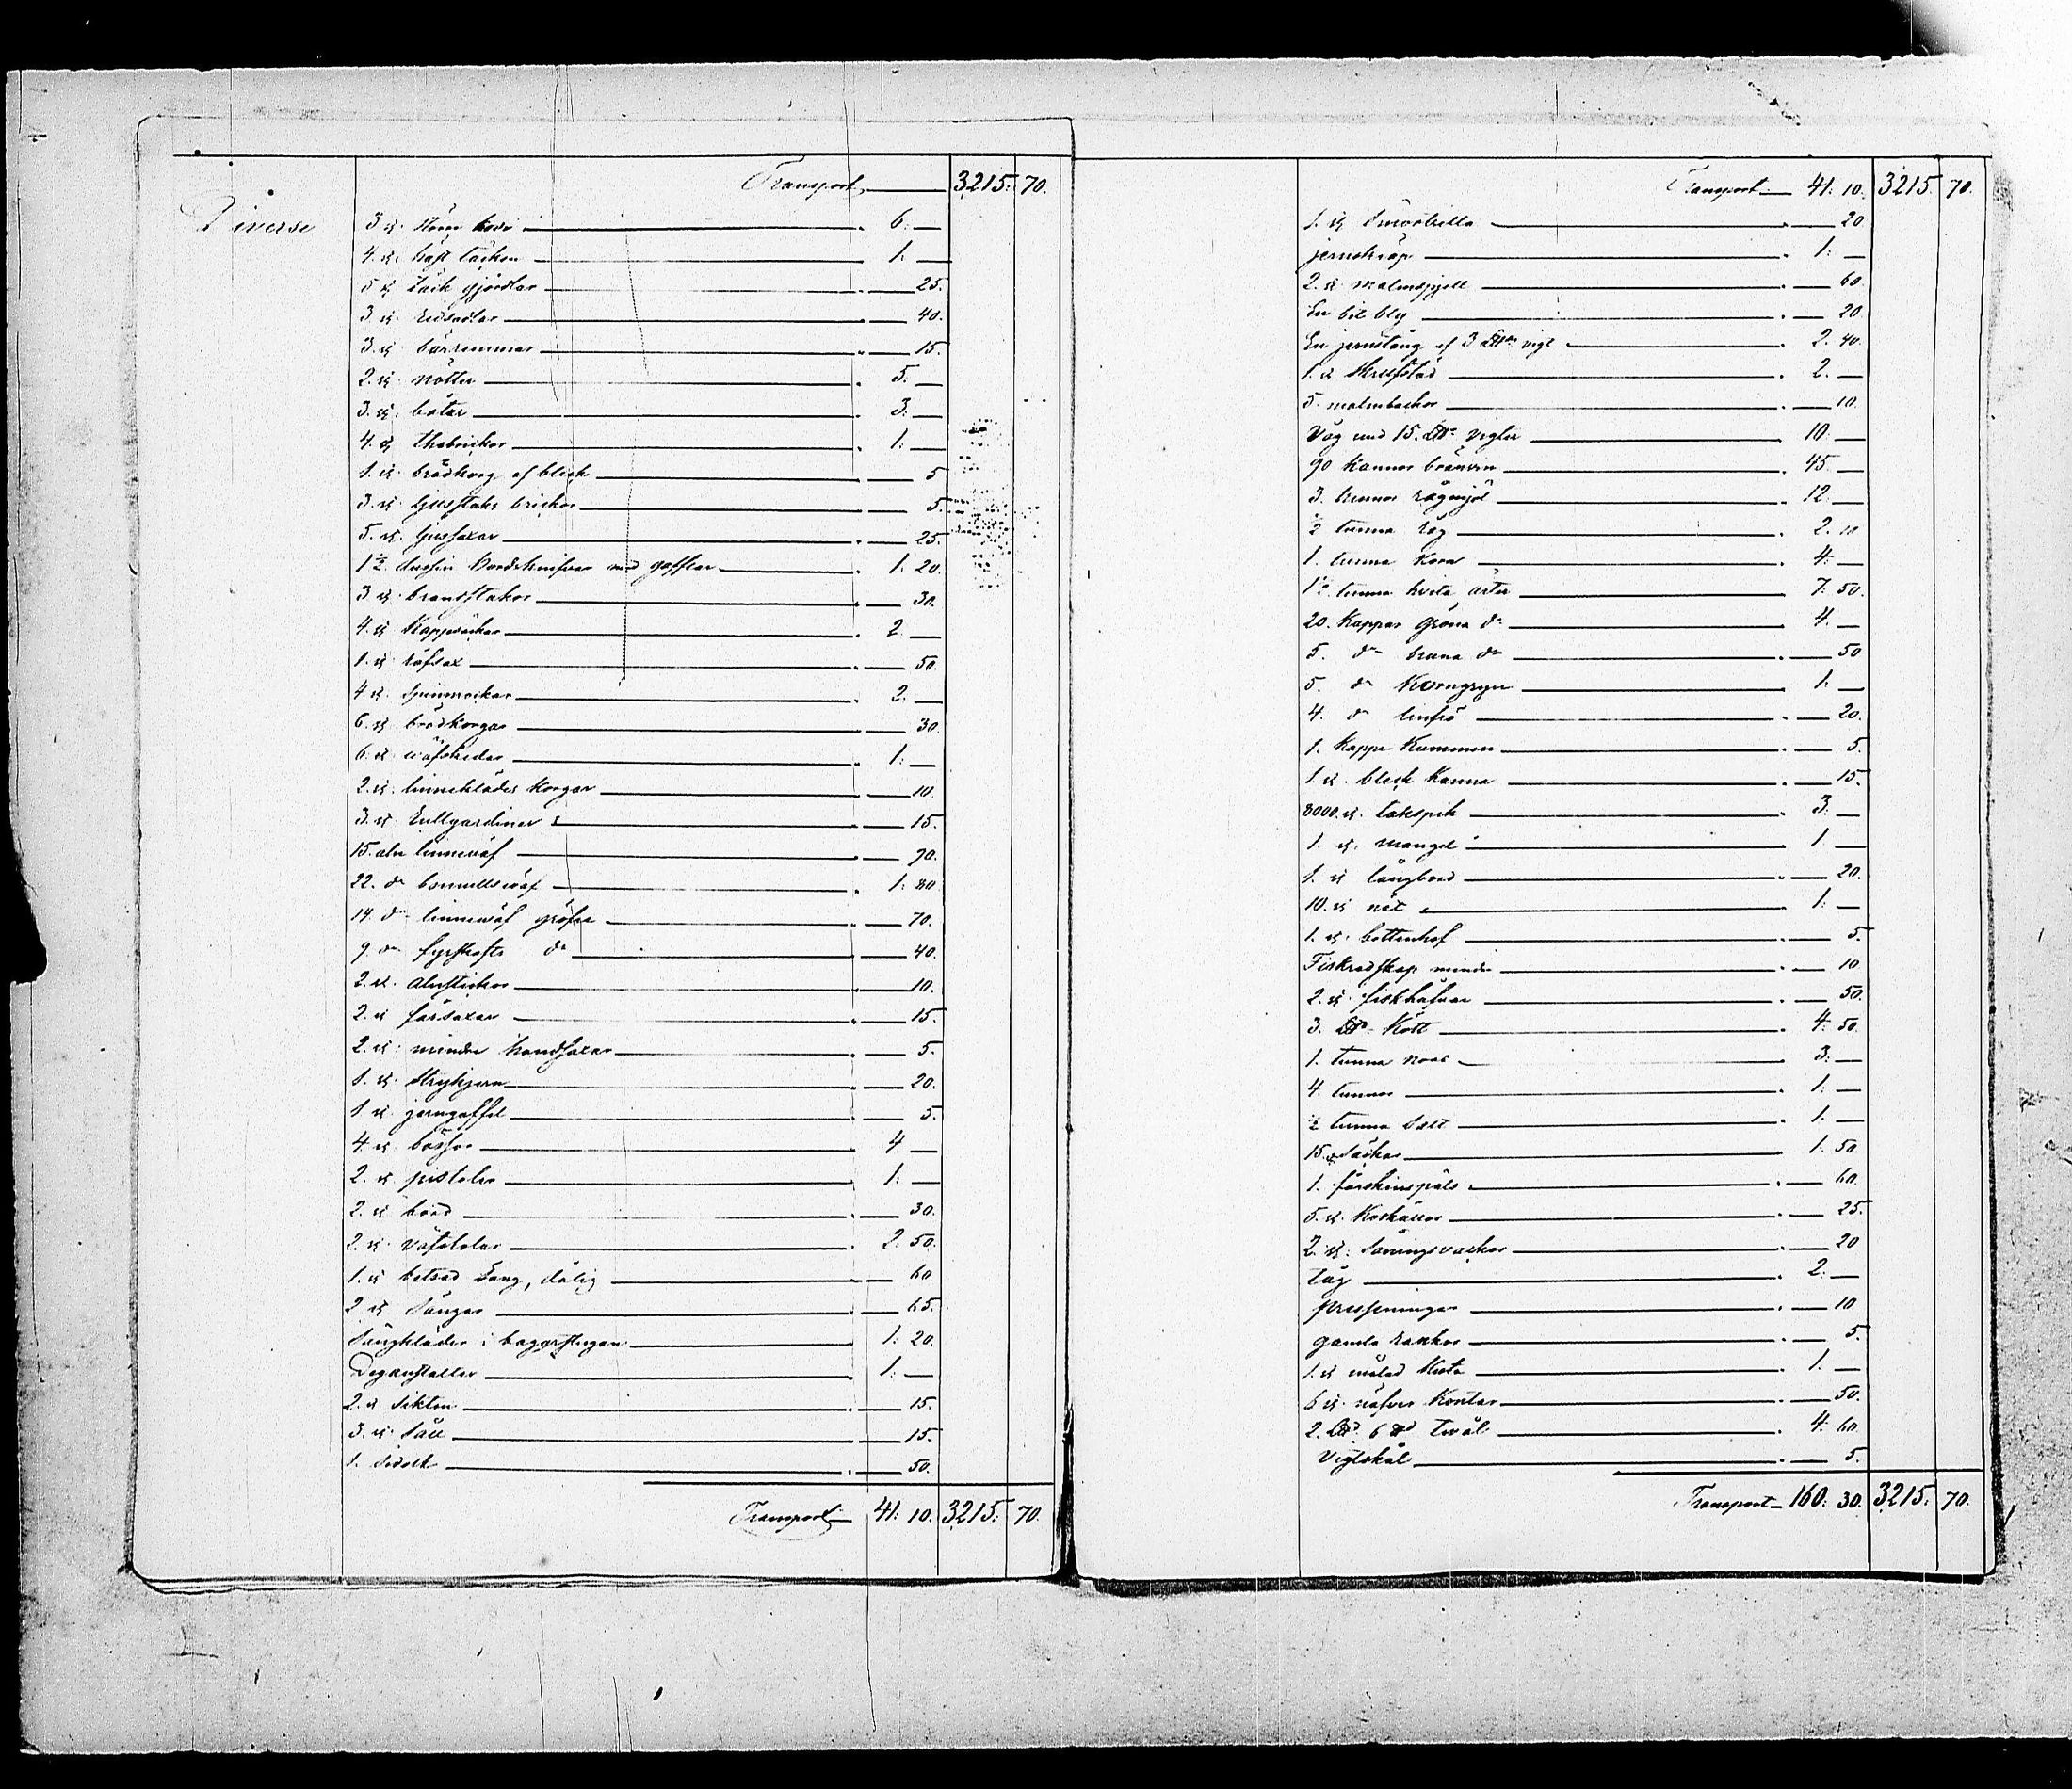 Transport 3215: 70.
Diverse
3 st. 6: —
4. st. häst täcken 1: —
5 st. täck gjördlar 25.
3 st. ridsadlar 40.
3. st. bärremmar 15.
2. st. nötter 5. —
3. st. båtar 3: —
4. st. thebrickor 1: —
1. st. brödkorg af bleck 5
3. st. ljusstaks brickor 5.
5. st. ljussaxar 25.
1 1/2 dussin bordsknifvar med gafflar 1. 20.
3 st. 30.
4. st. Kappsäckar 2. —
1. st. räfsax 50.
4. st. spinnrockar 2. —
6. st. brödkorgar 30.
6. st. wäfskedar 1: —
2. st. linnekläder korgar 10.
3. st. Rullgardiner 15.
15. aln linneväf 90.
22. do bomullsväf 1: 80.
14. do linneväf gröfre 70.
9 do fyrskafts do 40.
2. st. alnstickor 10.
2. st. fårsaxar 15.
2. st. mindre handsaxar 5.
1. st. Strykjern 20.
1 st. jerngaffel 5.
4 st. bössor 4 —
2. st pistoler 1: —
2. st bord 30.
2. st. Väfstolar 2. 50.
1. st betsad Säng, dålig 60.
2 st. Sängar 65.
Sängkläder i bagarstugan 1: 20.
Deganstalter 1: —
2. st Sikten 15.
3. st. Såll 15.
1. 50.
Transport 41: 10. 3215: 70.
Transport 41: 10. 3215. 70.
1. st 20.
jernskrap 1: —
2. st malmspjell 60.
En bit bly 20.
En jernstång af 3 vigt 2. 40.
1. st Skrufstäd 2. —
5. 10.
Våg med 15. vigter 10: —
90 Kannor bränvin 45. —
3. tunnor rågmjöl 12. —
1/2 tunna råg 2. 10
1. tunna Korn 4: —
1 1/2 tunna hvita ärter 7. 50.
20. Kappar gröna do 4. —
5. do bruna do 50
5. do Korngryn 1. —
4. do linfrö 20.
1. Kappe Kummin 5.
1. st. bleck Kanna 15.
8000. st. takspik 3: —
1. st. mangel 1 —
1. st långbord 20.
10. st nät 1: —
1. st. 5.
Fiskredskap mindre 10
2. st. fiskhåfvar 50.
3. Kött 4: 50.
1. tunna 3: —
4. tunnor 1: —
1/2 tunna Salt 1. —
15. st Säckar 1. 50.
1. fårskinspäls 60.
5. st. Koskällor 25.
2. st. Såningsvackor 20
tåg 2: —
presseningar 10
gamla 5.
1. st målad Kista 1. —
6 st. näfver Kontar 50.
2. 6 twål 4: 60.
Vigtskål 5.
Transport 160: 30. 3215: 70.